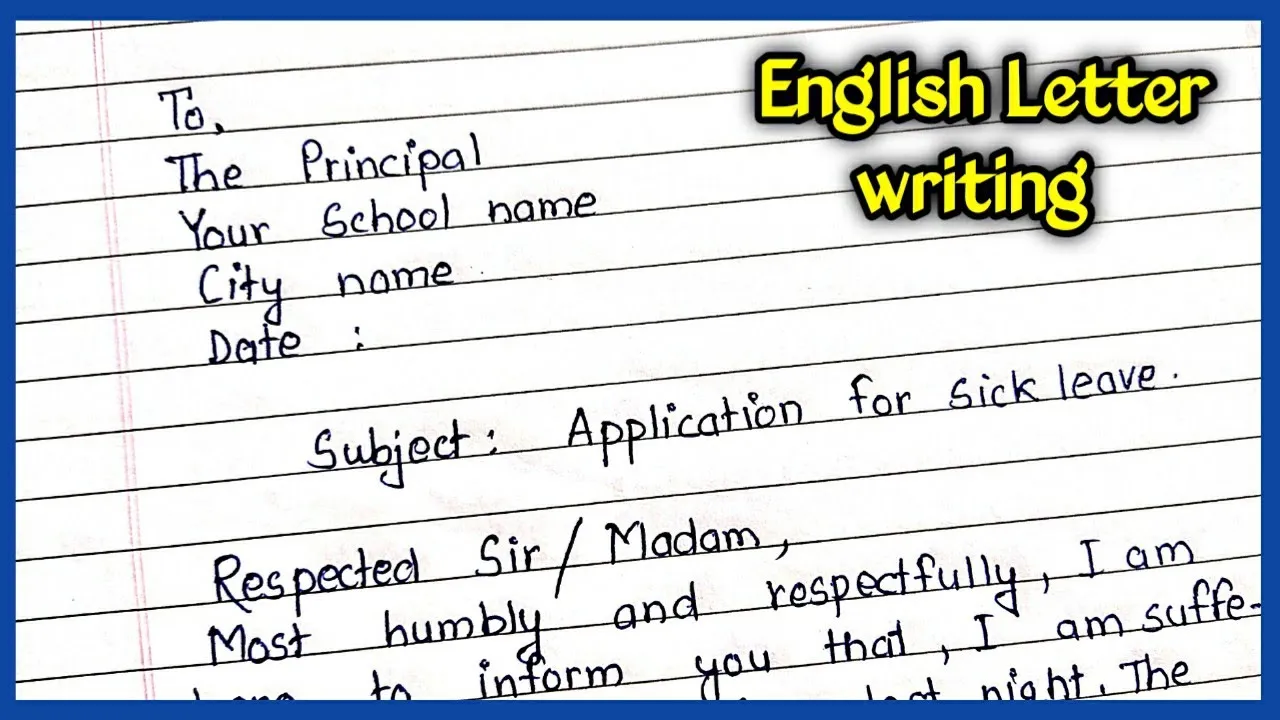 English Letter
writing
To,
The Principal
Your School name
City name
Date :
Subject: Application for sick leave.
Respected Sir / Madam,
Most humbly and respectfully, I am
to inform you that, I am suffe-
night. The